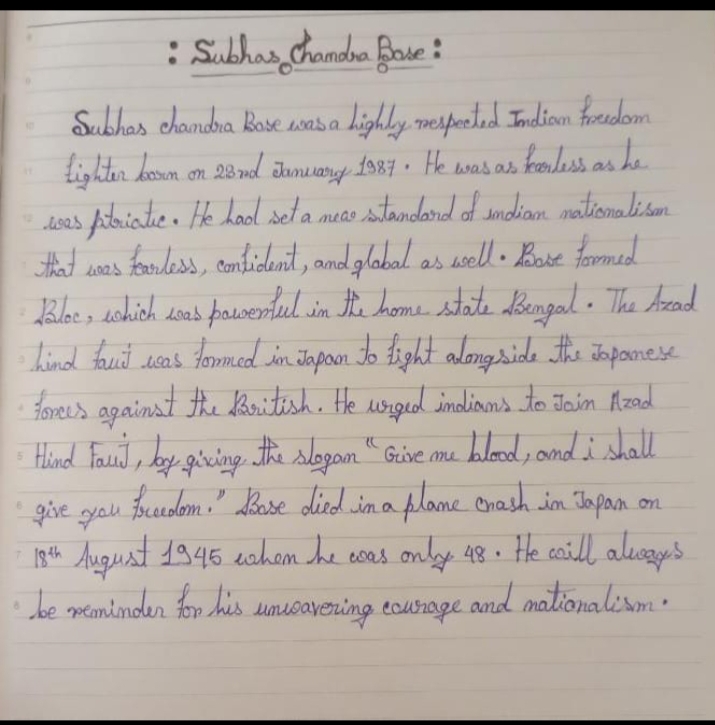 : Subhas Chandra Base :
Subhas chandra Base was a highly respected Indian freedom
fighter born on 23nd January 1987. He was as fearless as he
was ptriatic. He had set a new standard of indian nationalism
that was fearless, confident, and global as well. Base formed
Bloc, which was powerful in the home state Bengal. The Azad
hind fauj was formed in Japan to fight alongside the Japanese
forces against the British. He urged indians to Join Azad
Hind Fauj, by giving the slogan "Give me blood, and i shall
give you freedom." Base died in a plane crash in Japan on
18th August 1945 when he was only 48. He will always
be reminder for his unwavering courage and nationalism.